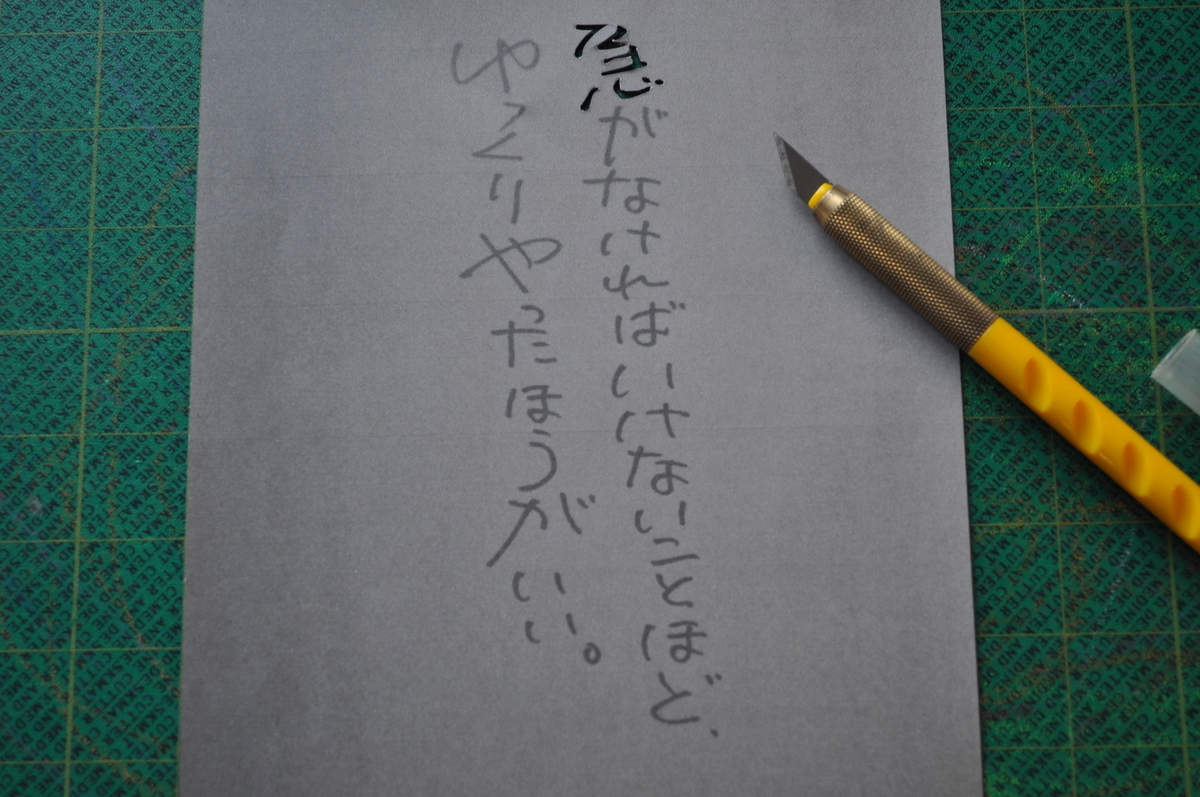 急がなければいけないことほど、
ゆっくりやったほうがいい。